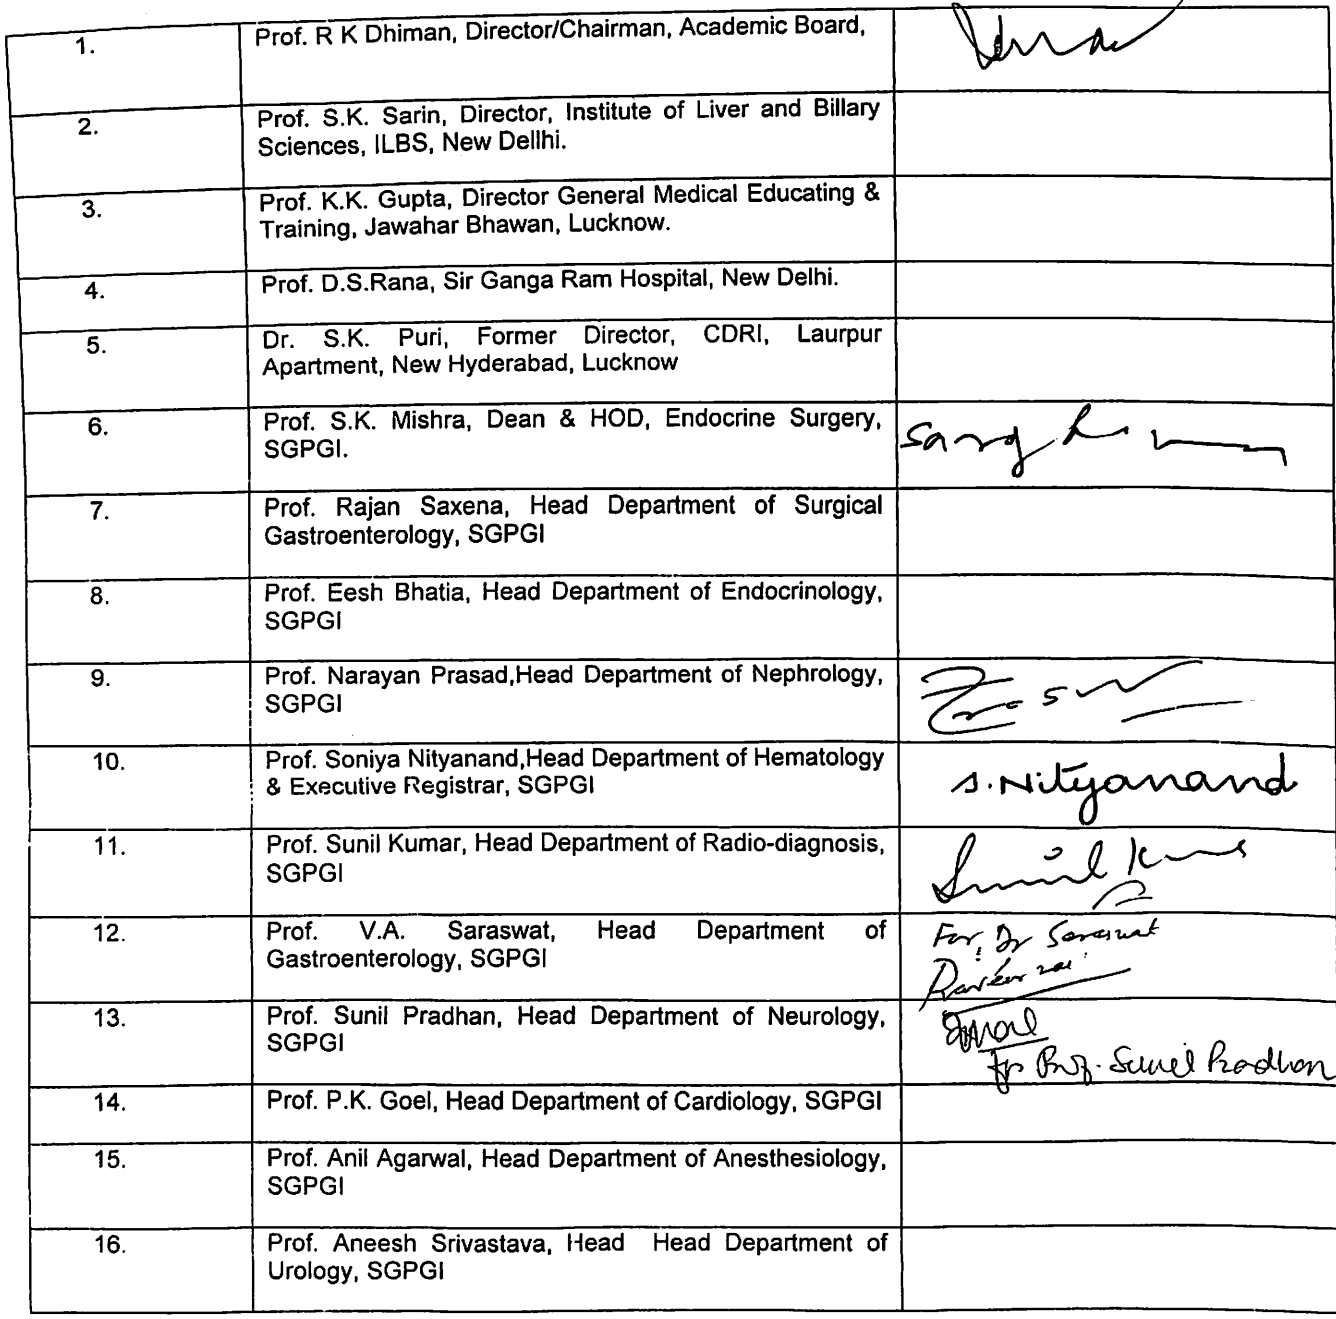 1.
Prof. R K Dhiman, Director/Chairman, Academic Board,
2.
Prof. S.K. Sarin, Director, Institute of Liver and Billary
Sciences, ILBS, New Dellhi.
3.
Prof. K.K. Gupta, Director General Medical Educating &
Training, Jawahar Bhawan, Lucknow.
4.
Prof. D.S.Rana, Sir Ganga Ram Hospital, New Delhi.
5.
Dr. S.K. Puri, Former Director, CDRI, Laurpur
Apartment, New Hyderabad, Lucknow
6.
Prof. S.K. Mishra, Dean & HOD, Endocrine Surgery,
SGPGI.
7.
Prof. Rajan Saxena, Head Department of Surgical
Gastroenterology, SGPGI
8.
Prof. Eesh Bhatia, Head Department of Endocrinology,
SGPGI
9.
Prof. Narayan Prasad,Head Department of Nephrology,
SGPGI
10.
Prof. Soniya Nityanand,Head Department of Hematology
& Executive Registrar, SGPGI
S. Nityanand
11.
Prof. Sunil Kumar, Head Department of Radio-diagnosis,
SGPGI
Sunil Kumar
12.
Prof. V.A. Saraswat, Head Department of
Gastroenterology, SGPGI
For, Dr Saraswat
13.
Prof. Sunil Pradhan, Head Department of Neurology,
SGPGI
fr Prof. Sunil Pradhan
14.
Prof. P.K. Goel, Head Department of Cardiology, SGPGI
15.
Prof. Anil Agarwal, Head Department of Anesthesiology,
SGPGI
16.
Prof. Aneesh Srivastava, Head Head Department of
Urology, SGPGI